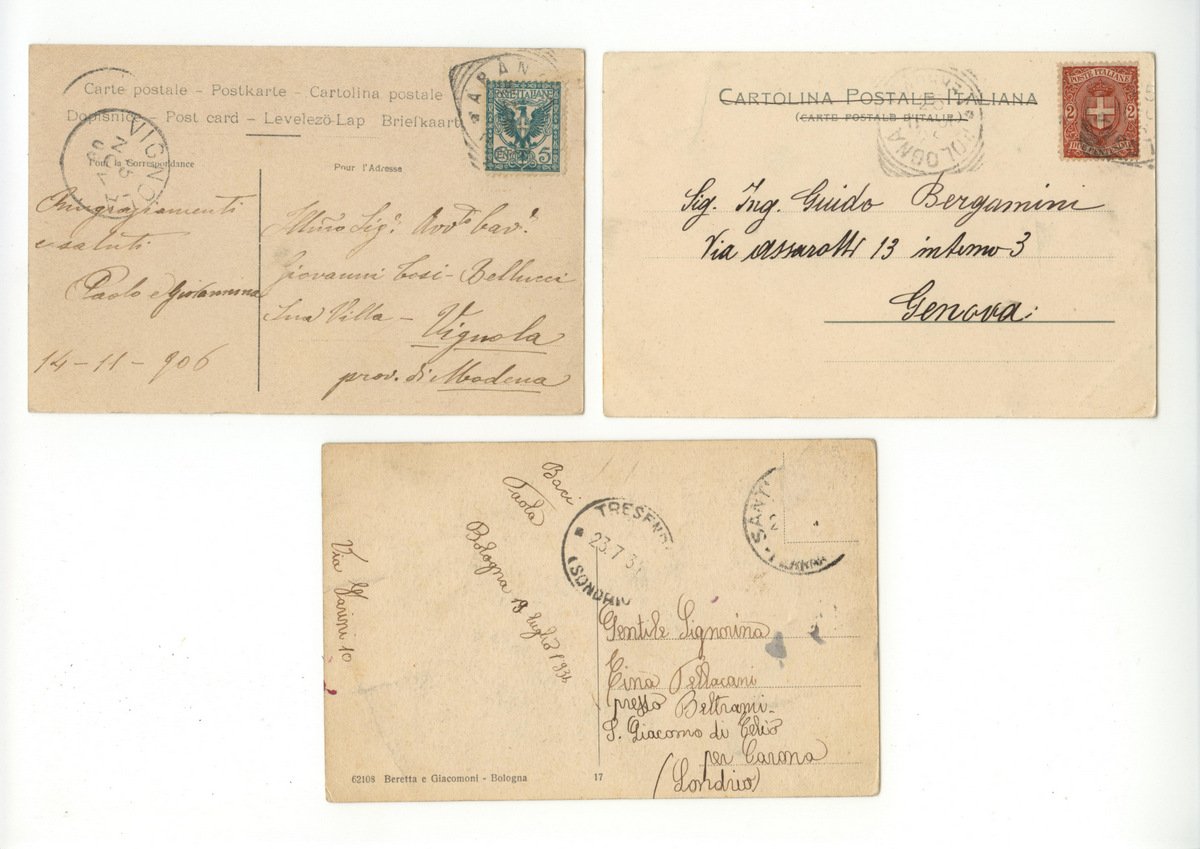 Carte postale – Postkarte – Cartolina postale
Dopisnice – Post card – Levelező-Lap Briefkaart
Pour la Correspondance
Pour l'Adresse
VIGNOLA
POSTE ITALIANE
CENT. 5
e saluti
Paolo e Giovannina
14-11-906
Illmo Sigr. Avvto Cavr.
Giovanni Cosi-Bellucci
Sua Villa – Vignola
prov. di Modena
CARTOLINA POSTALE ITALIANA
(CARTE POSTALE D'ITALIE)
BOLOGNA
POSTE ITALIANE
2 2
DUE CENTESIMI
Sig. Ing. Guido Bergamini
Via Assarotti 13 interno 3
Genova
Baci
Paola
Bologna 19 luglio 1936
TRESEND
23.7.3
(SONDRIO
SANT
Gentile Signorina
Tina Pellacani
presso Beltrami-
S. Giacomo di Teliò
per Carona
(Sondrio)
62108 Beretta e Giacomoni - Bologna
17